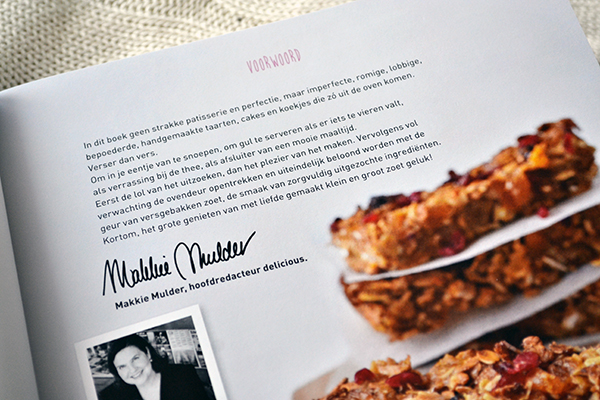 VOORWOORD
In dit boek geen strakke patisserie en perfectie, maar imperfecte, romige, lobbige,
bepoederde, handgemaakte taarten, cakes en koekjes die zó uit de oven komen.
Verser dan vers.
Om in je eentje van te snoepen, om gul te serveren als er iets te vieren valt,
als verrassing bij de thee, als afsluiter van een mooie maaltijd.
Eerst de lol van het uitzoeken, dan het plezier van het maken. Vervolgens vol
verwachting de ovendeur opentrekken en uiteindelijk beloond worden met de
geur van versgebakken zoet, de smaak van zorgvuldig uitgezochte ingrediënten.
Kortom, het grote genieten van met liefde gemaakt klein en groot zoet geluk!
Makkie Mulder
Makkie Mulder, hoofdredacteur delicious.